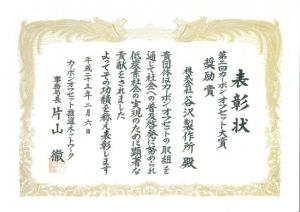 表彰状
第二回カーボン・オフセット大賞
奨励賞
株式会社 谷沢製作所 殿
貴団体はカーボン・オフセットの取組を
通して社会への普及啓発に努められ
低炭素社会の実現のために顕著な
貢献をされました
よってその功績を称え表彰します
平成二十五年二月六日
カーボン・オフセット推進ネットワーク
事務局長 片山 徹